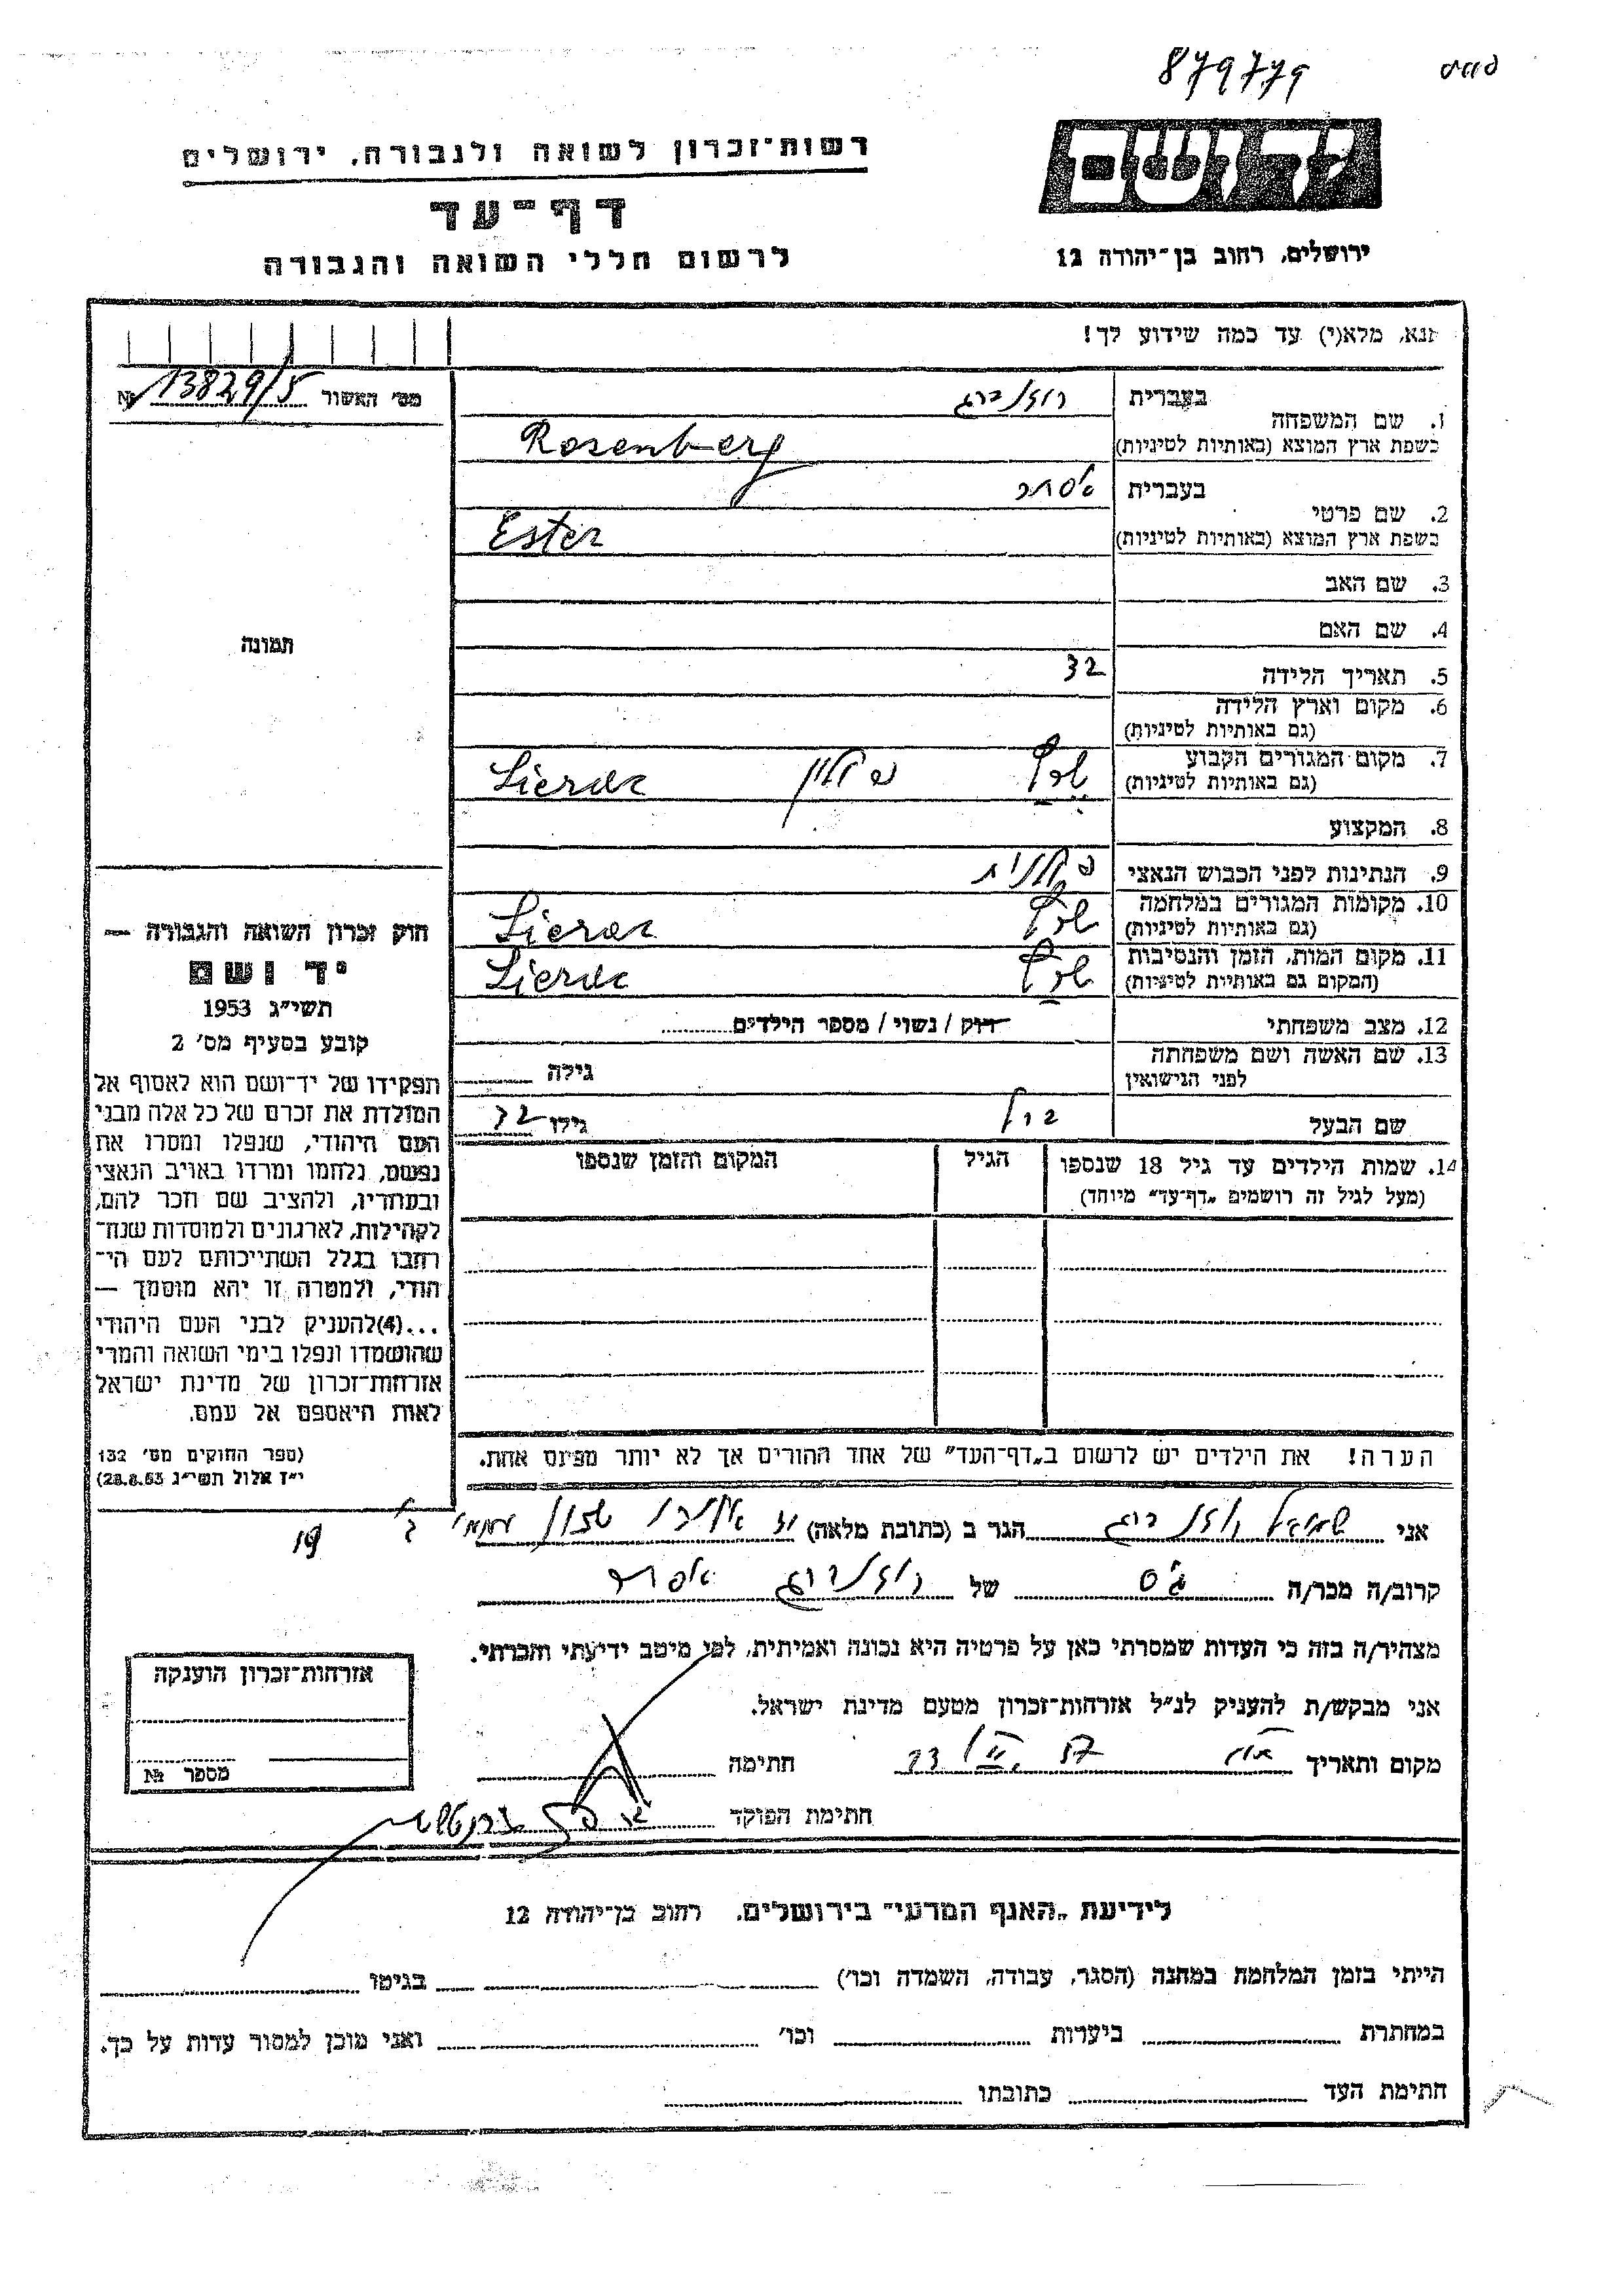 879779
רשות־זכרון לשואה ולגבורה, ירושלים
דף־עד
לרשום חללי השואה והגבורה
יד ושם
ירושלים, רחוב בן־יהודה 12
נא, מלא(י) עד כמה שידוע לך!
מס' האשור 13829/5 №
1. שם המשפחה
בעברית רוזנברג
בשפת ארץ המוצא (באותיות לטיניות) Rosenberg
2. שם פרטי
בעברית אסתר
בשפת ארץ המוצא (באותיות לטיניות) Ester
3. שם האב
4. שם האם
5. תאריך הלידה 32
6. מקום וארץ הלידה
(גם באותיות לטיניות)
7. מקום המגורים הקבוע
(גם באותיות לטיניות) פולין Sieradz
8. המקצוע
9. הנתינות לפני הכבוש הנאצי פולנית
10. מקומות המגורים במלחמה
(גם באותיות לטיניות)
11. מקום המות, הזמן והנסיבות
(המקום גם באותיות לטיניות)
12. מצב משפחתי רוק / נשוי / מספר הילדים
13. שם האשה ושם משפחתה
לפני הנישואין
גילה
שם הבעל גילו 32
14. שמות הילדים עד גיל 18 שנספו
(מעל לגיל זה רושמים „דף־עד” מיוחד)
הגיל
המקום והזמן שנספו
הערה! את הילדים יש לרשום ב„דף־העד” של אחד ההורים אך לא יותר מפעם אחת.
תמונה
חוק זכרון השואה והגבורה —
יד ושם
תשי״ג 1953
קובע בסעיף מס' 2
תפקידו של יד־ושם הוא לאסוף אל
המולדת את זכרם של כל אלה מבני
העם היהודי, שנפלו ומסרו את
נפשם, נלחמו ומרדו באויב הנאצי
ובעוזריו, ולהציב שם וזכר להם,
לקהילות, לארגונים ולמוסדות שנח־
רבו בגלל השתייכותם לעם הי־
הודי, ולמטרה זו יהא מוסמך —
...(4)להעניק לבני העם היהודי
שהושמדו ונפלו בימי השואה והמרי
אזרחות־זכרון של מדינת ישראל
לאות היאספם אל עמם.
(ספר החוקים מס' 132
י״ז אלול תשי״ג 28.8.53)
אני שמואל רוזנברג הגר ב (כתובת מלאה)
קרוב/ה מכר/ה גיס של רוזנברג אסתר
מצהיר/ה בזה כי העדות שמסרתי כאן על פרטיה היא נכונה ואמיתית, לפי מיטב ידיעתי והכרתי.
אני מבקש/ת להעניק לנ״ל אזרחות־זכרון מטעם מדינת ישראל.
מקום ותאריך חתימה
חתימת הפוקד
אזרחות־זכרון הוענקה
מספר №
לידיעת „האגף המדעי” בירושלים, רחוב בן־יהודה 12
הייתי בזמן המלחמה במחנה (הסגר, עבודה, השמדה וכו') בגיטו
במחתרת ביערות וכו' ואני מוכן למסור עדות על כך.
חתימת העד כתובתו